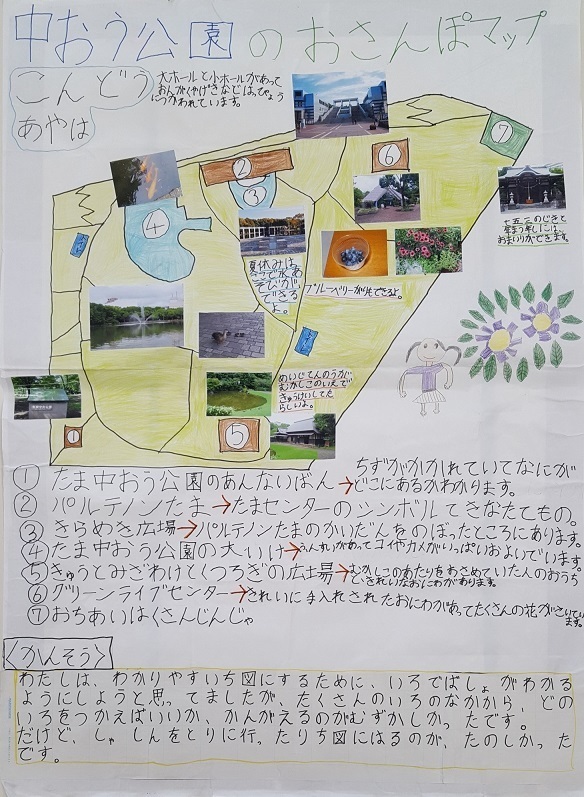 中おう公園のおさんぽマップ
こんどう
あやは
大ホールと小ホールがあって
おんがくやげきなどはっぴょう
につかわれています。
⑦
②
⑥
③
④
七五三のじきと
年まつ年しには
おまいりができます。
夏休みは、
入って水あ
そびが
できる
よ。
ブルーベリーがりもできるよ。
めいじてんのうが
むかしこのいえで
きゅうけいしてた
らしいよ。
①
⑤
① たま中おう公園のあんないばん→ちずがかかれていてなにが
どこにあるかわかります。
② パルテノンたま→たまセンターのシンボルてきなたてもの。
③ きらめき広場→パルテノンたまのかいだんをのぼったところにあります。
④ たま中おう公園の大いけ→ふんすいがあってコイやカメがいっぱいおよいでいます。
⑤ きゅうとみざわけとくつろぎの広場→むかしこのあたりをおさめていた人のおうち
ときれいなおにわがあります。
⑥ グリーンライブセンター→きれいに手入れされたおにわがあってたくさんの花がさいてい
ます。
⑦ おちあいはくさんじんじゃ
〈かんそう〉
わたしは、わかりやすいち図にするために、いろでばしょがわかる
ようにしようと思ってましたが、たくさんのいろのなかから、どの
いろをつかえばいいか、かんがえるのがむずかしかったです。
だけど、しゃしんをとりに行ったりち図にはるのが、たのしかった
です。